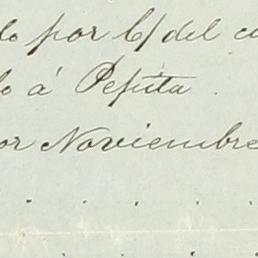 do por C/ del cu
lo á Pepita
or Noviembre